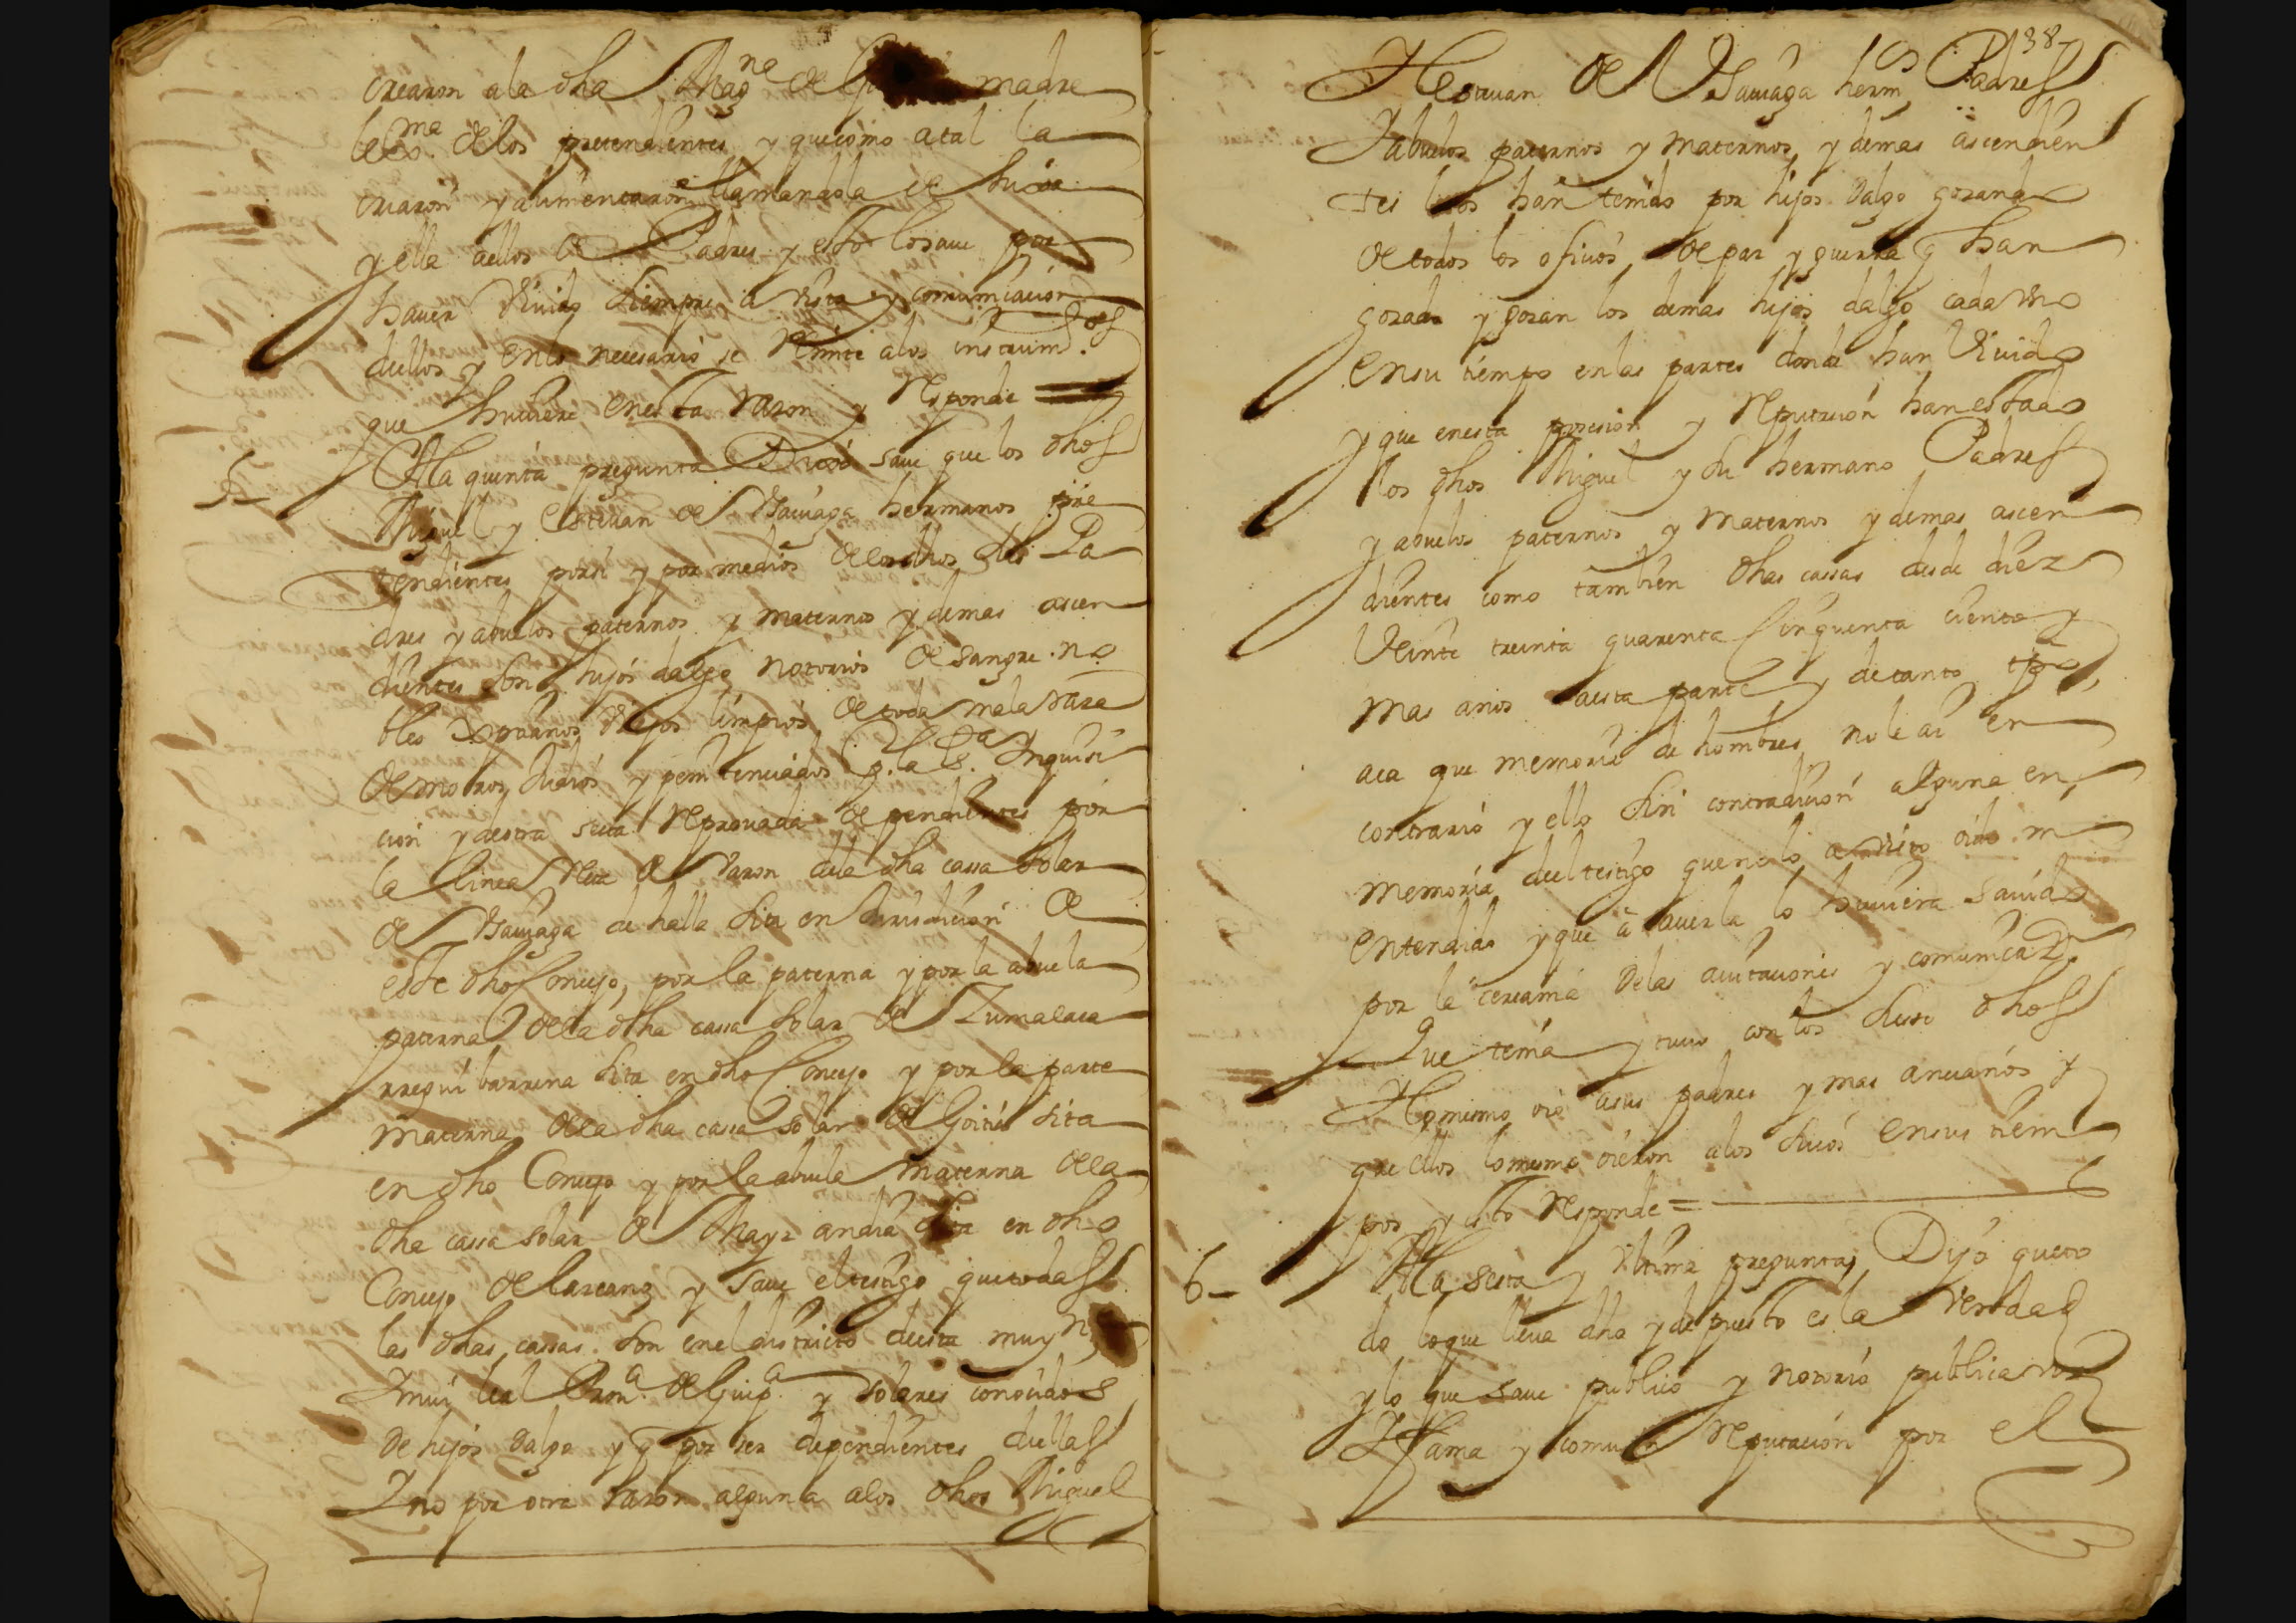 crearon a la dha Mag.na de madre
lexma de los pretendientes y que como a tal la
criaron y alimentaron llamandola de hija
y ella a ellos de Padres y esto lo saue por
hauer viuido siempre a vista y comunicacion
dellos y en lo necesario se Remite a los instrum.tos
que huuiere en esta razon y Responde =
5 A la quinta pregunta Dixo saue que los dhos
Miguel y Esteuan de Ysauaga hermanos pre
tendientes por si y por medios de los dhos sus Pa
dres y abuelos paternos y maternos y demas ascen
dientes son hijos dalgo notorios de sangre no
bles xptianos viejos limpios de toda mala raza
de moros Judios y penitenciados p. la S.ta Inquisi
cion y de otra secta Reprouada dependientes por
la linea Recta de Varon de la dha cassa solar
de Ysauaga de halla sita en Jurisdicion de
este dho Concejo, por la paterna y por la abuela
paterna de la dha cassa solar de Zumalaca
rregui barrena sita en dho Concejo y por la parte
materna de la dha cassa solar de Goitia sita
en dho Concejo y por la abuela materna de la
dha cassa solar de Mayz andia sita en dho
Concejo de lazcano y saue el testigo que todas
las dhas cassas son en el districto desta muy n
Y mui leal Prou.a de Guip.a y solares conocidos
de hijos dalgo y q por ser dependientes dellas
Y no por otra razon alguna a los dhos Miguel
38
Y Esteuan de Ysauaga herm.os Padres
Y abuelos paternos y maternos, y demas ascendien
tes los han tenido por hijos dalgo gozando
de todos los oficios de paz y guerra q han
gozado y gozan los demas hijos dalgo cada vno
en su tiempo en las partes donde han Viuido
y que en esta posesion y Reputacion han estado
los dhos Miguel y su hermano Padres
y abuelos paternos y maternos y demas ascen
dientes como tambien dhas cassas desde diez
Veinte treinta quarenta Cinquenta ciento y
mas años a esta parte y de tanto tpo
aca que memoria de hombres no le ai en
contrario y ello sin contradicion alguna en
memoria del testigo que no lo a visto oido ni
entendido y que a auerla lo huuiera sauido
por la cercania de las auitaciones y comunicaz.on
Que tenia y tuuo con los suso dhos
Y lo mismo oio a sus padres y mas ancianos y
que ellos lo mismo oieron a los suios en sus tiem
pos y esto Responde =
6 A la sesta y vltima pregunta, Dijo que to
do lo que lleua dho y depuesto es la verdad
y lo que saue publico y notorio publica voz
Y fama y comun Reputacion por el